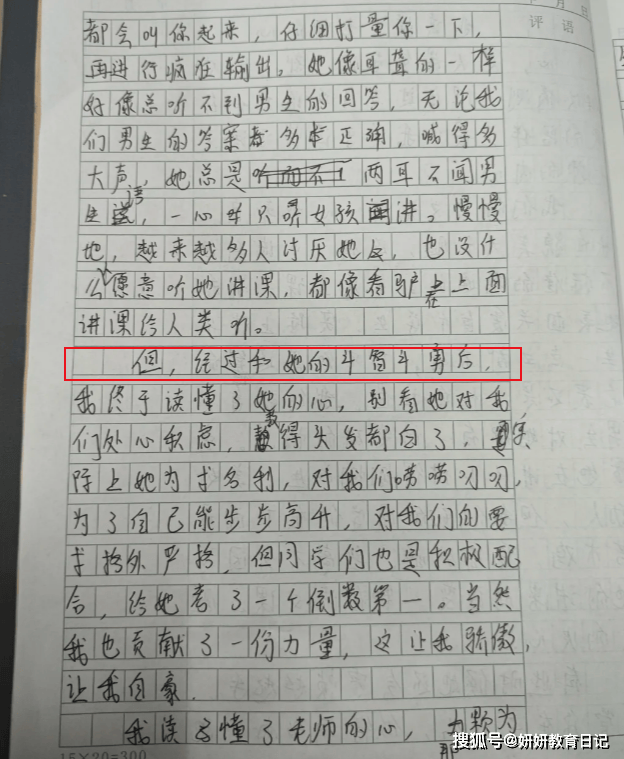 月 日
评 语
都会叫你起来，仔细打量你一下，
再进行疯狂输出。她像耳聋的一样
好像总听不到男生的回答，无论我
们男生的答案多正确，喊得多
大声，她总是听而不 两耳不闻男
生话，一心只寻女孩讲。慢慢
地，越来越多人讨厌她，也没什
么愿意听她讲课，都像看驴在上面
讲课给人类听。
但，经过和她的斗智斗勇后，
我终于读懂了她的心，别看她对我
们处心积虑，教得头发都白了，实
际上她为求名利，对我们唠唠叨叨，
为了自己能步步高升，对我们的要
求格外严格，但同学们也是积极配
合，给她考了一个倒数第一。当然
我也贡献了一份力量，这让我骄傲，
让我自豪。
我读懂了老师的心，为
那
15×20=300
搜狐号@妍妍教育日记